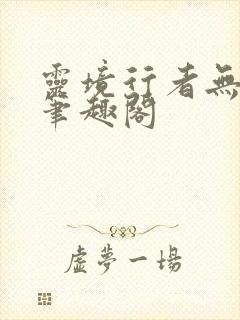 靈境行者無
筆趣閣
虛夢一場